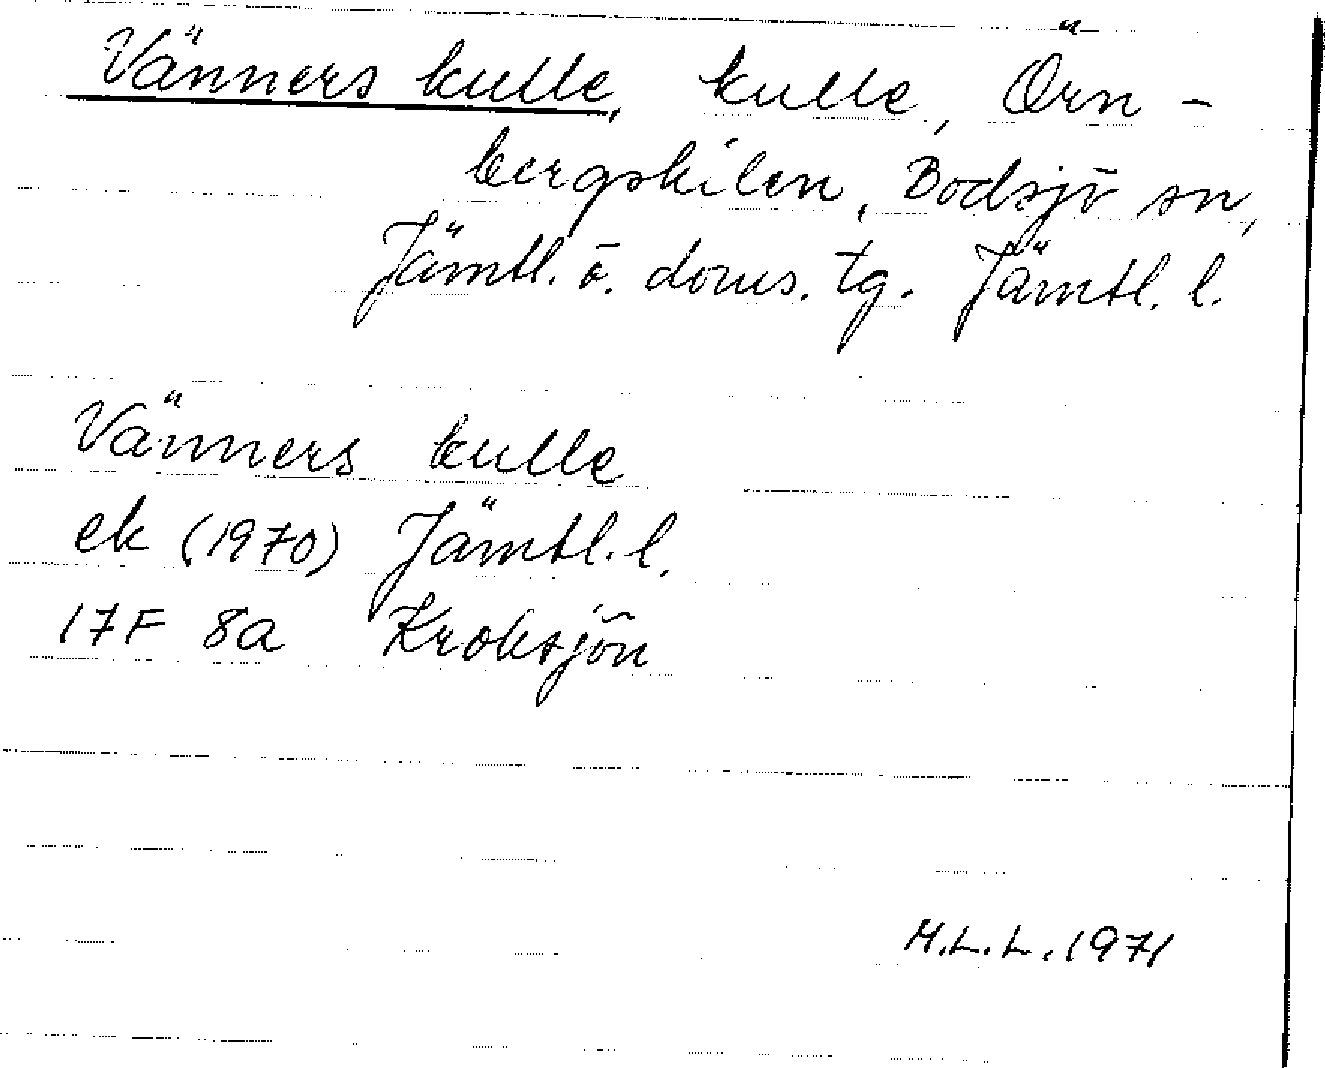 Vänners kulle, kulle, Örn-
bergskilen, Bodsjö sn,
Jämtl. ö. doms. tg. Jämtl. l.
Vänners kulle
ek (1970) Jämtl. l.
17F 8a Kroksjön
M.L.L. 1971